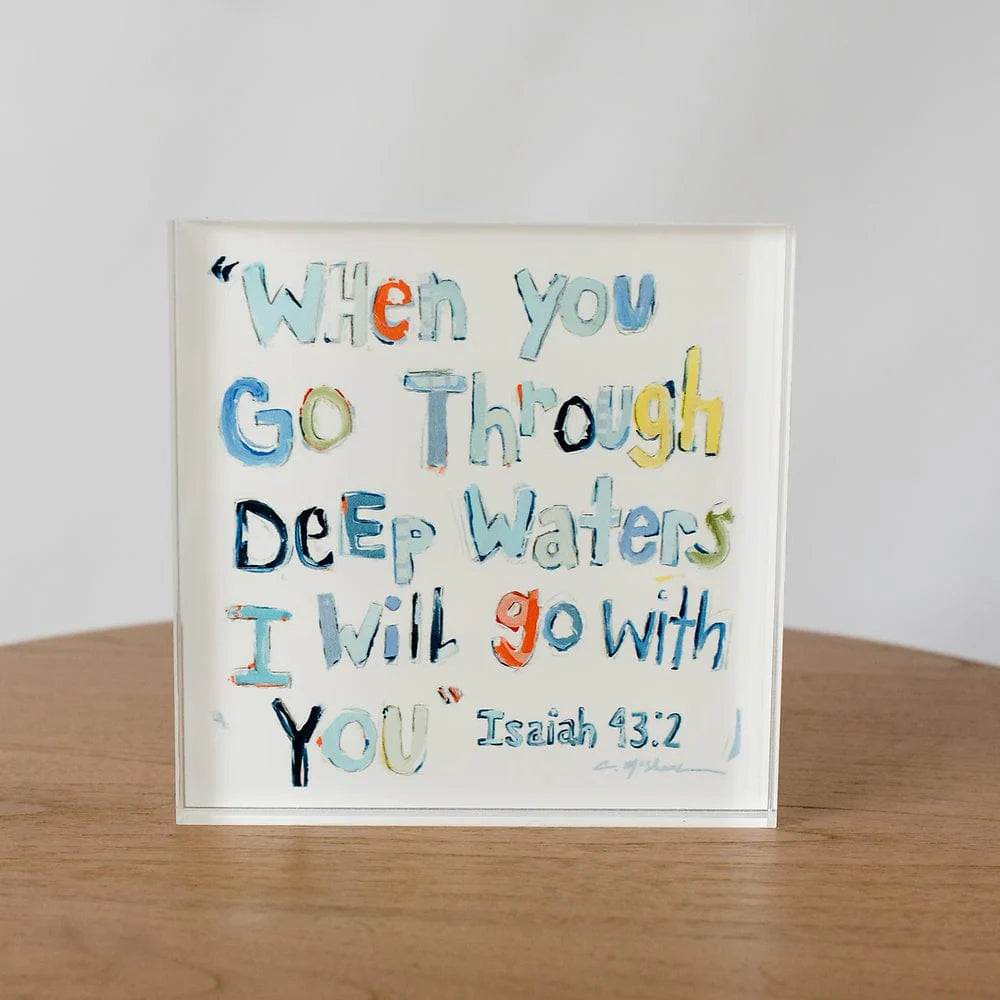 “WHen you
Go Through
DeEp Waters
I Will go with
YOU” Isaiah 43:2